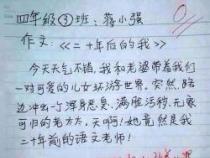 四年级③班：蒋小强
0
作文：《二十年后的我》
今天天气不错，我和老婆带着我们
一对可爱的儿女环游世界。突然，路
边冲出一个浑身恶臭、满脸污秽、无家
可归的老太太，天啊！她竟然是我
二十年前的语文老师！